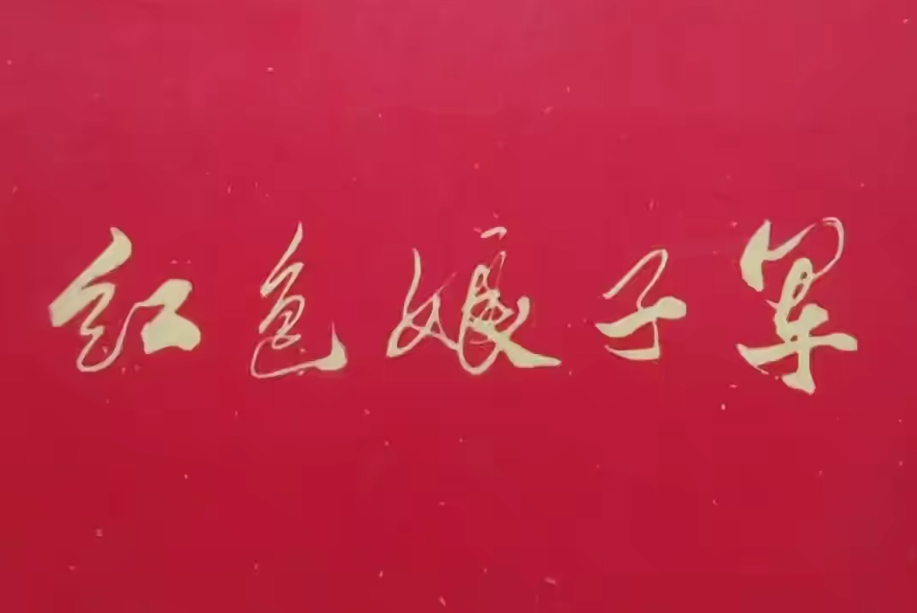 红色娘子军